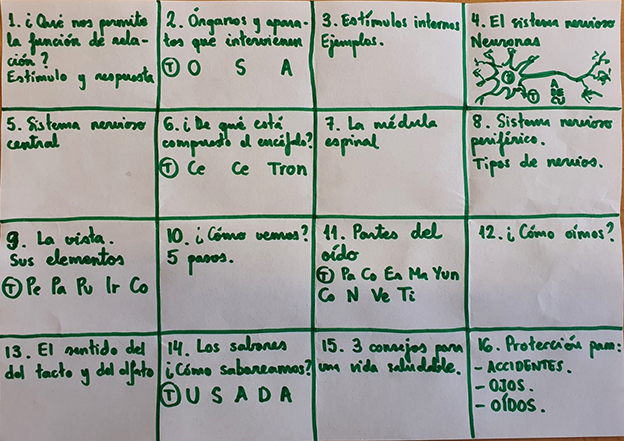 1. ¿Qué nos permite
la función de rela-
ción?
Estímulo y respuesta
2. Órganos y apara-
tos que intervienen
T O S A
3. Estímulos internos
Ejemplos.
4. El sistema nervioso
Neuronas
T
A
DE
CU
5. Sistema nervioso
central
6. ¿De qué está
compuesto el encéfalo?
T Ce Ce Tron
7. La médula
espinal
8. Sistema nervioso
periférico.
Tipos de nervios.
9. La vista.
Sus elementos
T Pe Pa Pu Ir Co
10. ¿Cómo vemos?
5 pasos.
11. Partes del
oído
T Pa Co En Ma Yun
Co N Ve Ti
12. ¿Cómo oímos?
13. El sentido del
del tacto y del olfato
14. Los sabores
¿Cómo saboreamos?
T U S A D A
15. 3 consejos para
una vida saludable.
16. Protección para:
- ACCIDENTES.
- OJOS.
- OÍDOS.